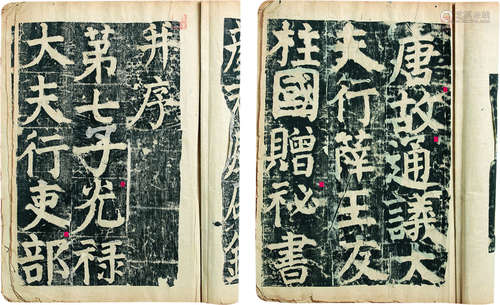 唐故通議大
夫行薛王友
柱國贈祕書
并序
第七子光祿
大夫行吏部